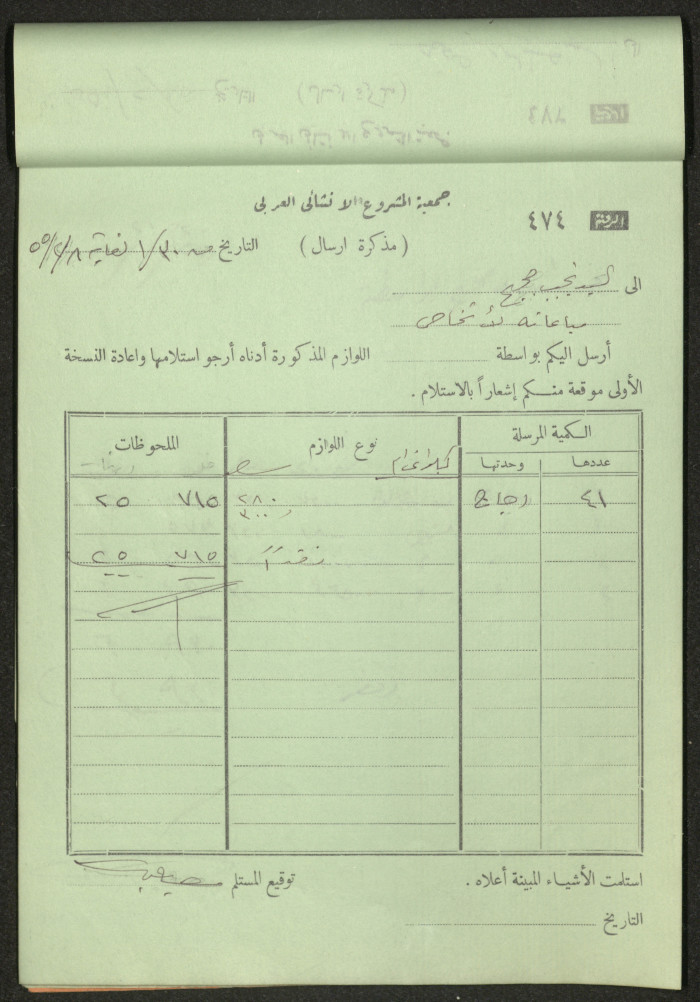 جمعية المشروع الانشائي العربي
الرقم ٤٧٤
( مذكرة ارسال ) التاريخ من ١/٣٠ لغاية ٥٥/٢/٨
الى السيد نجيب حجيج
مباعاته لأشخاص
أرسل اليكم بواسطة اللوازم المذكورة أدناه أرجو استلامها واعادة النسخة
الأولى موقعة منكم إشعاراً بالاستلام .
الكمية المرسلة نوع اللوازم الملحوظات
عددها وحدتها
٤١ دجاج ٢٨٠ ٧١٥ ٢٥
٣٠٠
نقداً ٧١٥ ٢٥
استلمت الأشياء المبينة أعلاه . توقيع المستلم
التاريخ